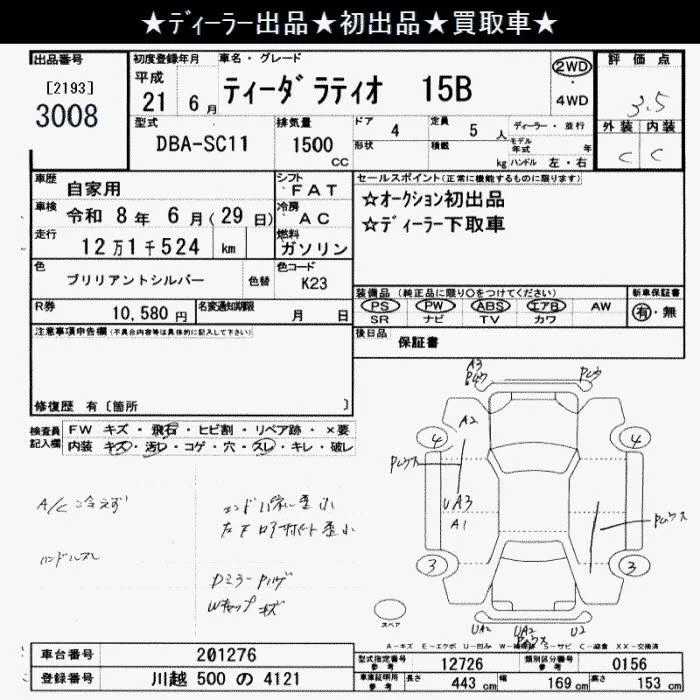 ★ディーラー出品★初出品★買取車★
出品番号
[2193]
3008
初度登録年月
平成
21 6月
車名・グレード
ティーダラティオ 15B
2WD
・
4WD
評価点
3.5
外装 内装
C C
型式
DBA-SC11
排気量
1500
CC
ドア 4
形状
定員 5 人
積載 kg
ディーラー・並行
モデル年式 年
ハンドル 左・右
車歴 自家用
車検 令和 8年 6月(29日)
走行 12万1千524 km
シフト FAT
冷房 AC
燃料 ガソリン
色 ブリリアントシルバー 色替
色コード K23
R券 10,580円
名変通知期限 月 日
セールスポイント(正常に機能するものに限ります)
☆オークション初出品
☆ディーラー下取車
装備品(純正品に限り〇をつけてください)
PS PW ABS エアB AW
SR ナビ TV カワ
新車保証書
有・無
後日品
保証書
注意事項申告欄(不具合内容等は具体的に記入して下さい)
修復歴 有〔箇所 〕
検査員記入欄
FW キズ・飛石・ヒビ割・リペア跡・×要
内装 キズ・汚レ・コゲ・穴・スレ・キレ・破レ
A/C冷えず
ハンドルスレ
エンドパネル歪小
左下ロアサポート歪小
Dミラー
Wキャップ キズ
A3
A2
UA3
A1
4
4
3
3
UA2
UA2
U2
スペア
A-キズ E-エクボ U-凹み W-補修跡 S-サビ C-腐食 XX-交換済
車台番号 201276
登録番号 川越 500 の 4121
型式指定番号 参考 12726
類別区分番号 参考 0156
車庫証明用 参考 長さ 443 cm 幅 169 cm 高さ 153 cm